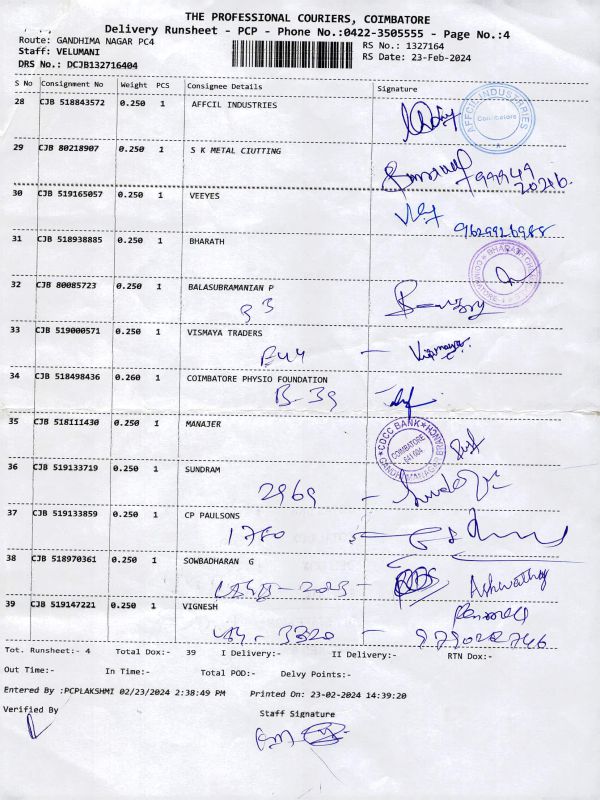 THE PROFESSIONAL COURIERS, COIMBATORE
Delivery Runsheet - PCP - Phone No.:0422-3505555 - Page No.:4
Route: GANDHIMA NAGAR PC4
RS No.: 1327164
Staff: VELUMANI
RS Date: 23-Feb-2024
DRS No.: DCJB132716404
S No Consignment No Weight PCS Consignee Details Signature
28 CJB 518843572 0.250 1 AFFCIL INDUSTRIES
AFFCIL INDUSTRIES
Coimbatore
29 CJB 80218907 0.250 1 S K METAL CIUTTING
30 CJB 519165057 0.250 1 VEEYES
9629926988
31 CJB 518938885 0.250 1 BHARATH
32 CJB 80085723 0.250 1 BALASUBRAMANIAN P
33 CJB 519000571 0.250 1 VISMAYA TRADERS
34 CJB 518498436 0.260 1 COIMBATORE PHYSIO FOUNDATION
B-39
35 CJB 518111430 0.250 1 MANAJER
CDCC BANK
COIMBATORE
641 004
36 CJB 519133719 0.250 1 SUNDRAM
2969 -
37 CJB 519133859 0.250 1 CP PAULSONS
38 CJB 518970361 0.250 1 SOWBADHARAN G
Ashwathy
39 CJB 519147221 0.250 1 VIGNESH
3320 -
Tot. Runsheet:- 4 Total Dox:- 39 I Delivery:- II Delivery:- RTN Dox:-
Out Time:- In Time:- Total POD:- Delvy Points:-
Entered By :PCPLAKSHMI 02/23/2024 2:38:49 PM Printed On: 23-02-2024 14:39:20
Verified By Staff Signature